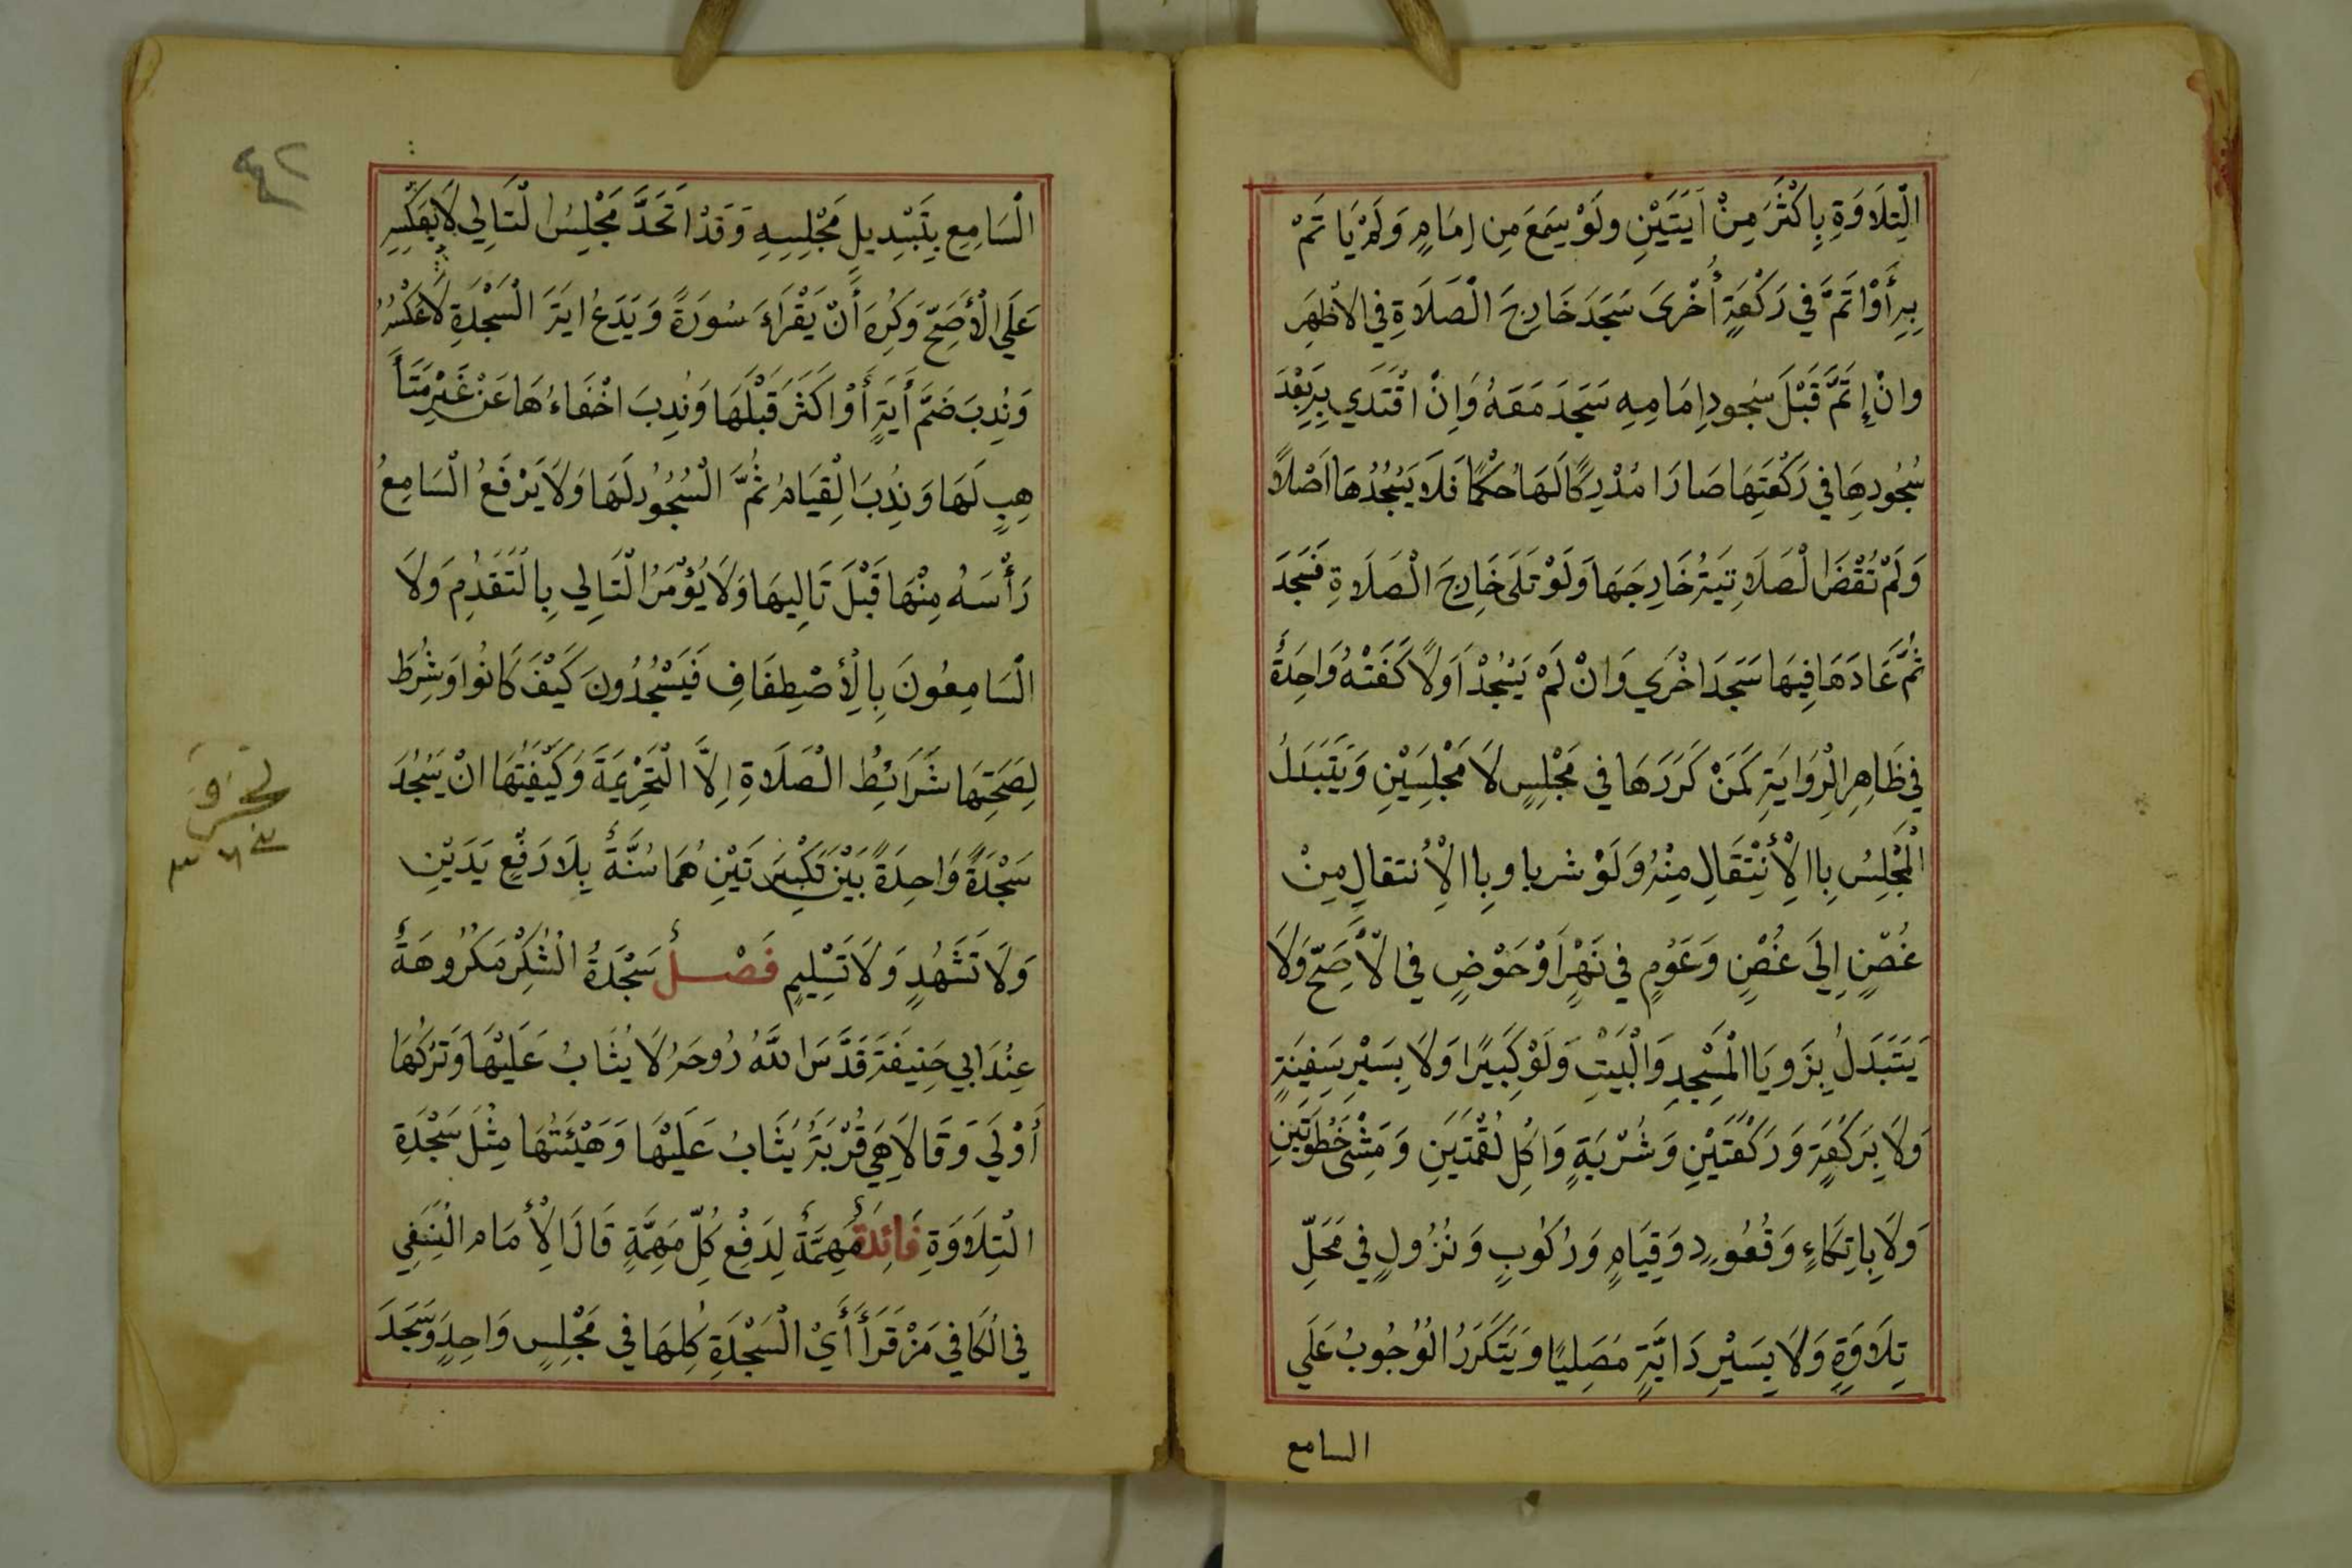 التِّلَاوَةِ بِاَكْثَرَ مِنْ اٰيَتَيْنِ ولَوْ سَمِعَ مِن اِمَامٍ وَلَمْ يَا تَمْ
بِهِ أَوْ اتَمَّ فِي رَكْعَةٍ أُخْرَى سَجَدَ خَارِجَ الْصَلَاةِ فِي الاَظْهَرِ
وانْ إتَمَّ قَبْلَ سُجودِ اِمَامِهِ سَجَدَ مَعَهُ وَاِنْ اقْتَدَي بِهِ بَعْدَ
سُجُودِهَا فِي رَكْعَتِهَا صَارَا مُدْرِكًا لَهَا حُكْمًا فَلَا يَسْجُدُهَا اَصْلاً
وَلَمْ تُقْضَ الْصَلَاتِيَّةُ خَارِجَهَا وَلَوْ تَلَى خَارِجَ الْصَلَاةِ فَسَجَدَ
ثُمَّ عَادَهَا فِيهَا سَجَدَ اخْرَي وَانْ لَمْ يَسْجُدْ اَوَلاً كَفَتْهُ وَاحِدَةٌ
فِي ظَاهِرِ الْرِوَايَةِ كَمَنْ كَرَرَهَا فِي مَجْلِسٍ لَا مَجْلِسَيْنِ وَيَتَبَدَلُ
الْمَجْلِسُ بِاالْأنْتِقَالِ مِنْهُ وَلَوْ شربا وبِاالْاِنتقالِ مِنْ
غُصْنٍ اِلَي غُصْنٍ وَعَوْمٍ فِي نَهْرٍ اَوْ حَوْضٍ فِي الْأَصَحِّ وَلَا
يَتَبَدَلُ بِزَوِيَا الْمَسْجِدِ وَالْبَيْتِ وَلَوْ كَبِيرًا وَلَا بِسَيْرِ سَفِينَةٍ
وَلَا بِرَكْعَةٍ وَرَكْعَتَيْنِ وَشُرْبَةٍ وَاكْلِ لُقْمَتَيْنِ وَمَشْي خَطْوَتَيْنِ
وَلَا بِاتِكَاءٍ وَقُعُودٍ وَقِيَامٍ وَرُكُوبٍ وَنُزُولٍ فِي مَحَلِّ
تِلَاوَةٍ وَلَا بِسَيْرِ دَابَّةٍ مُصَلِيًا وَيَتَكَرَرُ الْوُجُوبُ عَلَي
السامع
٤٢
الْسَامِعِ بِتَبْدِيلِ مَجْلِسِهِ وَقَدْ اتَحَدَّ مَجْلِسُ الْتَالِي لَا بِعَكْسِهِ
عَلَي الْأَصَحِّ وَكُرِهَ أَنْ يَقْرَاءَ سُورَةً وَيَدَعُ ايَةَ الْسَجْدَةِ لَا عَكْسُهُ
وَنُدِبَ ضَمَّ أَيَةٍ أَوْ اَكَثَرَ قَبْلَهَا وَنُدِبَ اخْفَاءُهَا عَنْ غَيْرِ مَتَأَ
هِبٍ لَهَا وَنُدِبَ الْقِيَامُ ثُمَّ الْسُجُودُ لَهَا وَلَا يَرْفَعُ الْسَامِعُ
رَأْسَهُ مِنْهَا قَبْلَ تَالِيهَا وَلَا يُؤْمَرُ الْتَالِي بِالْتَقَدُمِ وَلَا
الْسَامِعُونَ بِالْأِصْطِفَافِ فَيَسْجُدُونَ كَيْفَ كَانُوا وَشُرِطَ
لِصَحَتِهَا شَرَائِطُ الْصَلَاةِ اِلَّا الْتَحْرِيمَةَ وَكَيْفِيَتُهَا انْ يَسْجُدَ
سَجْدَةً وَاحِدَةً بَيْنَ تَكْبِيرَتَيْنِ هُمَا سُنَّةٌ بِلَا رَفْعِ يَدَيْنِ
وَلَا تَشَهُدٍ وَلَا تَسْلِيمٍ فَصْلٌ سَجْدَةُ الْشُكْرِ مَكْرُوهَةٌ
عِنْدَ ابِي حَنِيفَةَ قَدَّسَ اللَّهُ رُوحَهُ لَا يُثَابُ عَلَيْهَا وَتَرْكُهَا
أَوْلَي وَقَالَا هِيَ قُرْبَةٌ يُثَابُ عَلَيْهَا وَهَيْئَتُهَا مِثْلَ سَجْدَةِ
الْتِلَاوَةِ فَائِدَةٌ مُهِمَّةٌ لِدَفْعِ كُلِّ مَهِمَّةٍ قَالَ الْأِمَام الْنَسَفِي
فِي الْكَافِي مَنْ قَرَأَ أَيَ الْسَجْدَةِ كُلِهَا فِي مَجْلِسٍ وَاحِدٍ وَسَجَدَ